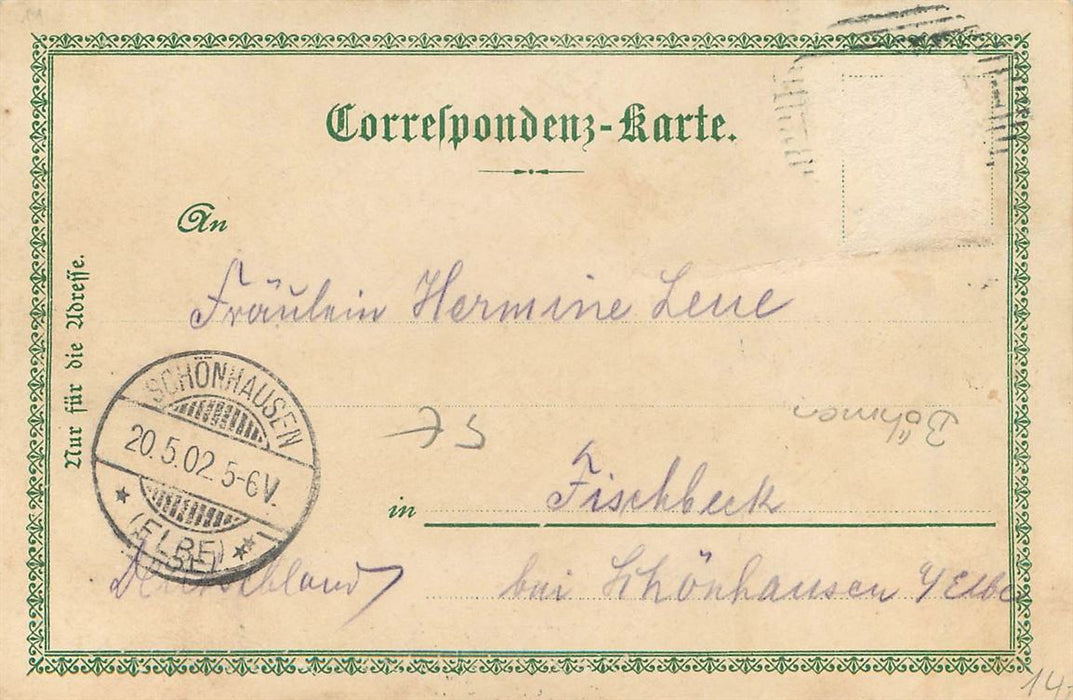 Correspondenz-Karte.
An
Nur für die Adresse.
Fräulein Hermine Leue
Böhmen
SCHÖNHAUSEN
20.5.02. 5-6V.
(ELBE)
in Fischbeck
Deutschland bei Schönhausen a/Elbe
14.-